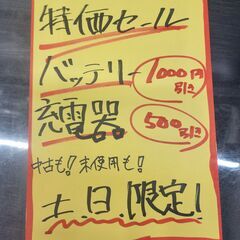 特価セール
バッテリー 1000円引き
充電器 500引き
中古も!未使用も!
土.日.限定!